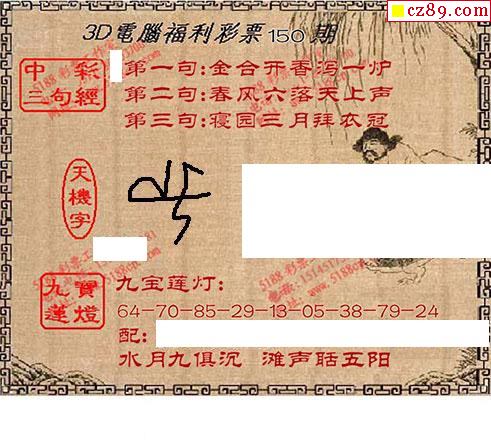 cz89.com
3D電腦福利彩票150期
中彩
三句經
第一句:金合开香泻一炉
第二句:春风六落天上声
第三句:寝园三月拜衣冠
天機字
九寶
蓮燈
九宝莲灯:
64-70-85-29-13-05-38-79-24
配:
水月九俱沉 滩声聒五阳